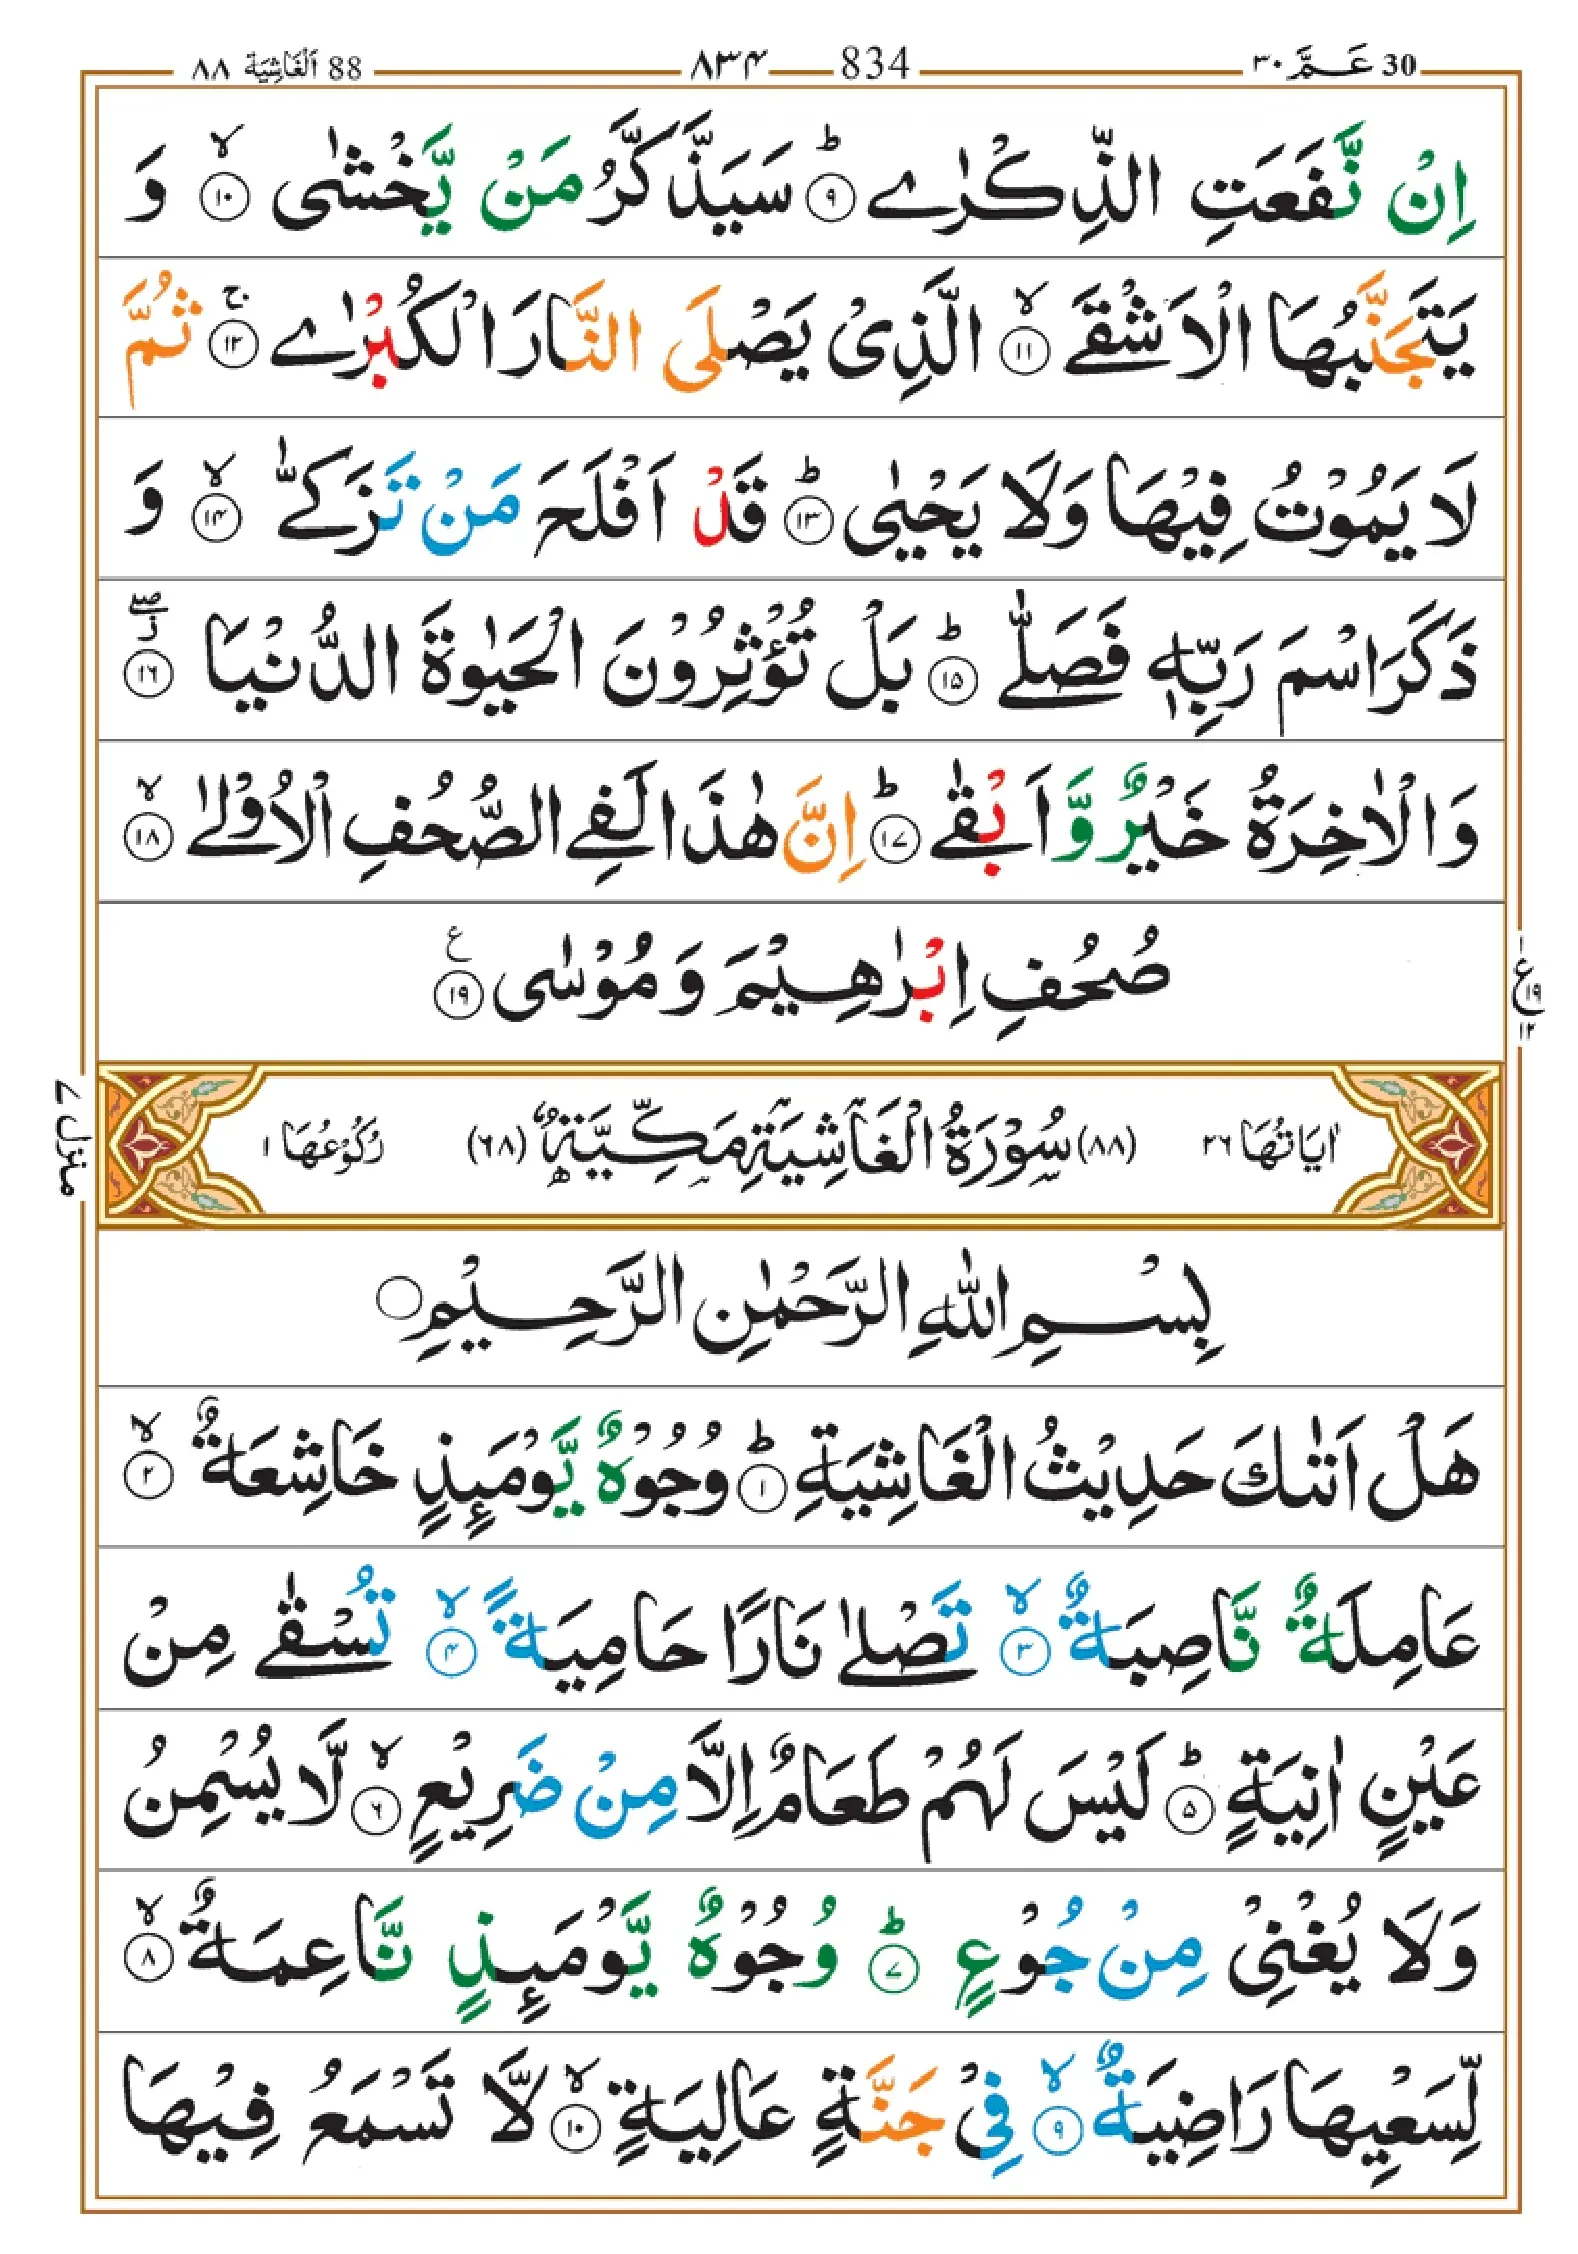 30 عَـمَّ ٣٠ 834 ٨٣۴ 88 اَلْغَاشِيَة ٨٨
اِنْ نَّفَعَتِ الذِّكْرٰىؕ ۹ سَيَذَّكَّرُ مَنْ يَّخْشٰىۙ ۱۰ وَ
يَتَجَنَّبُهَا الْاَشْقَىۙ ۱۱ الَّذِىْ يَصْلَى النَّارَ الْكُبْرٰىۚ ۱۲ ثُمَّ
لَا يَمُوْتُ فِيْهَا وَلَا يَحْيٰىؕ ۱۳ قَدْ اَفْلَحَ مَنْ تَزَكّٰىۙ ۱۴ وَ
ذَكَرَ اسْمَ رَبِّهٖ فَصَلّٰىؕ ۱۵ بَلْ تُؤْثِرُوْنَ الْحَيٰوةَ الدُّنْيَاۖ ۱۶
وَالْاٰخِرَةُ خَيْرٌ وَّ اَبْقٰىؕ ۱۷ اِنَّ هٰذَا لَفِى الصُّحُفِ الْاُوْلٰىۙ ۱۸
صُحُفِ اِبْرٰهِيْمَ وَ مُوْسٰى ۱۹ ع
ع ۱ ۱۹ ۱۲
منزل ۷
اٰيَاتُهَا ٢٦ (٨٨) سُوْرَةُ الْغَاشِيَةِ مَكِّيَّةٌ (٦٨) رُكُوْعُهَا ١
بِسْمِ اللّٰهِ الرَّحْمٰنِ الرَّحِيْمِ
هَلْ اَتٰىكَ حَدِيْثُ الْغَاشِيَةِؕ ۱ وُجُوْهٌ يَّوْمَئِذٍ خَاشِعَةٌۙ ۲
عَامِلَةٌ نَّاصِبَةٌۙ ۳ تَصْلٰى نَارًا حَامِيَةًۙ ۴ تُسْقٰى مِنْ
عَيْنٍ اٰنِيَةٍؕ ۵ لَيْسَ لَهُمْ طَعَامٌ اِلَّا مِنْ ضَرِيْعٍۙ ۶ لَّا يُسْمِنُ
وَلَا يُغْنِىْ مِنْ جُوْعٍؕ ۷ وُجُوْهٌ يَّوْمَئِذٍ نَّاعِمَةٌۙ ۸
لِّسَعْيِهَا رَاضِيَةٌۙ ۹ فِىْ جَنَّةٍ عَالِيَةٍۙ ۱۰ لَّا تَسْمَعُ فِيْهَا